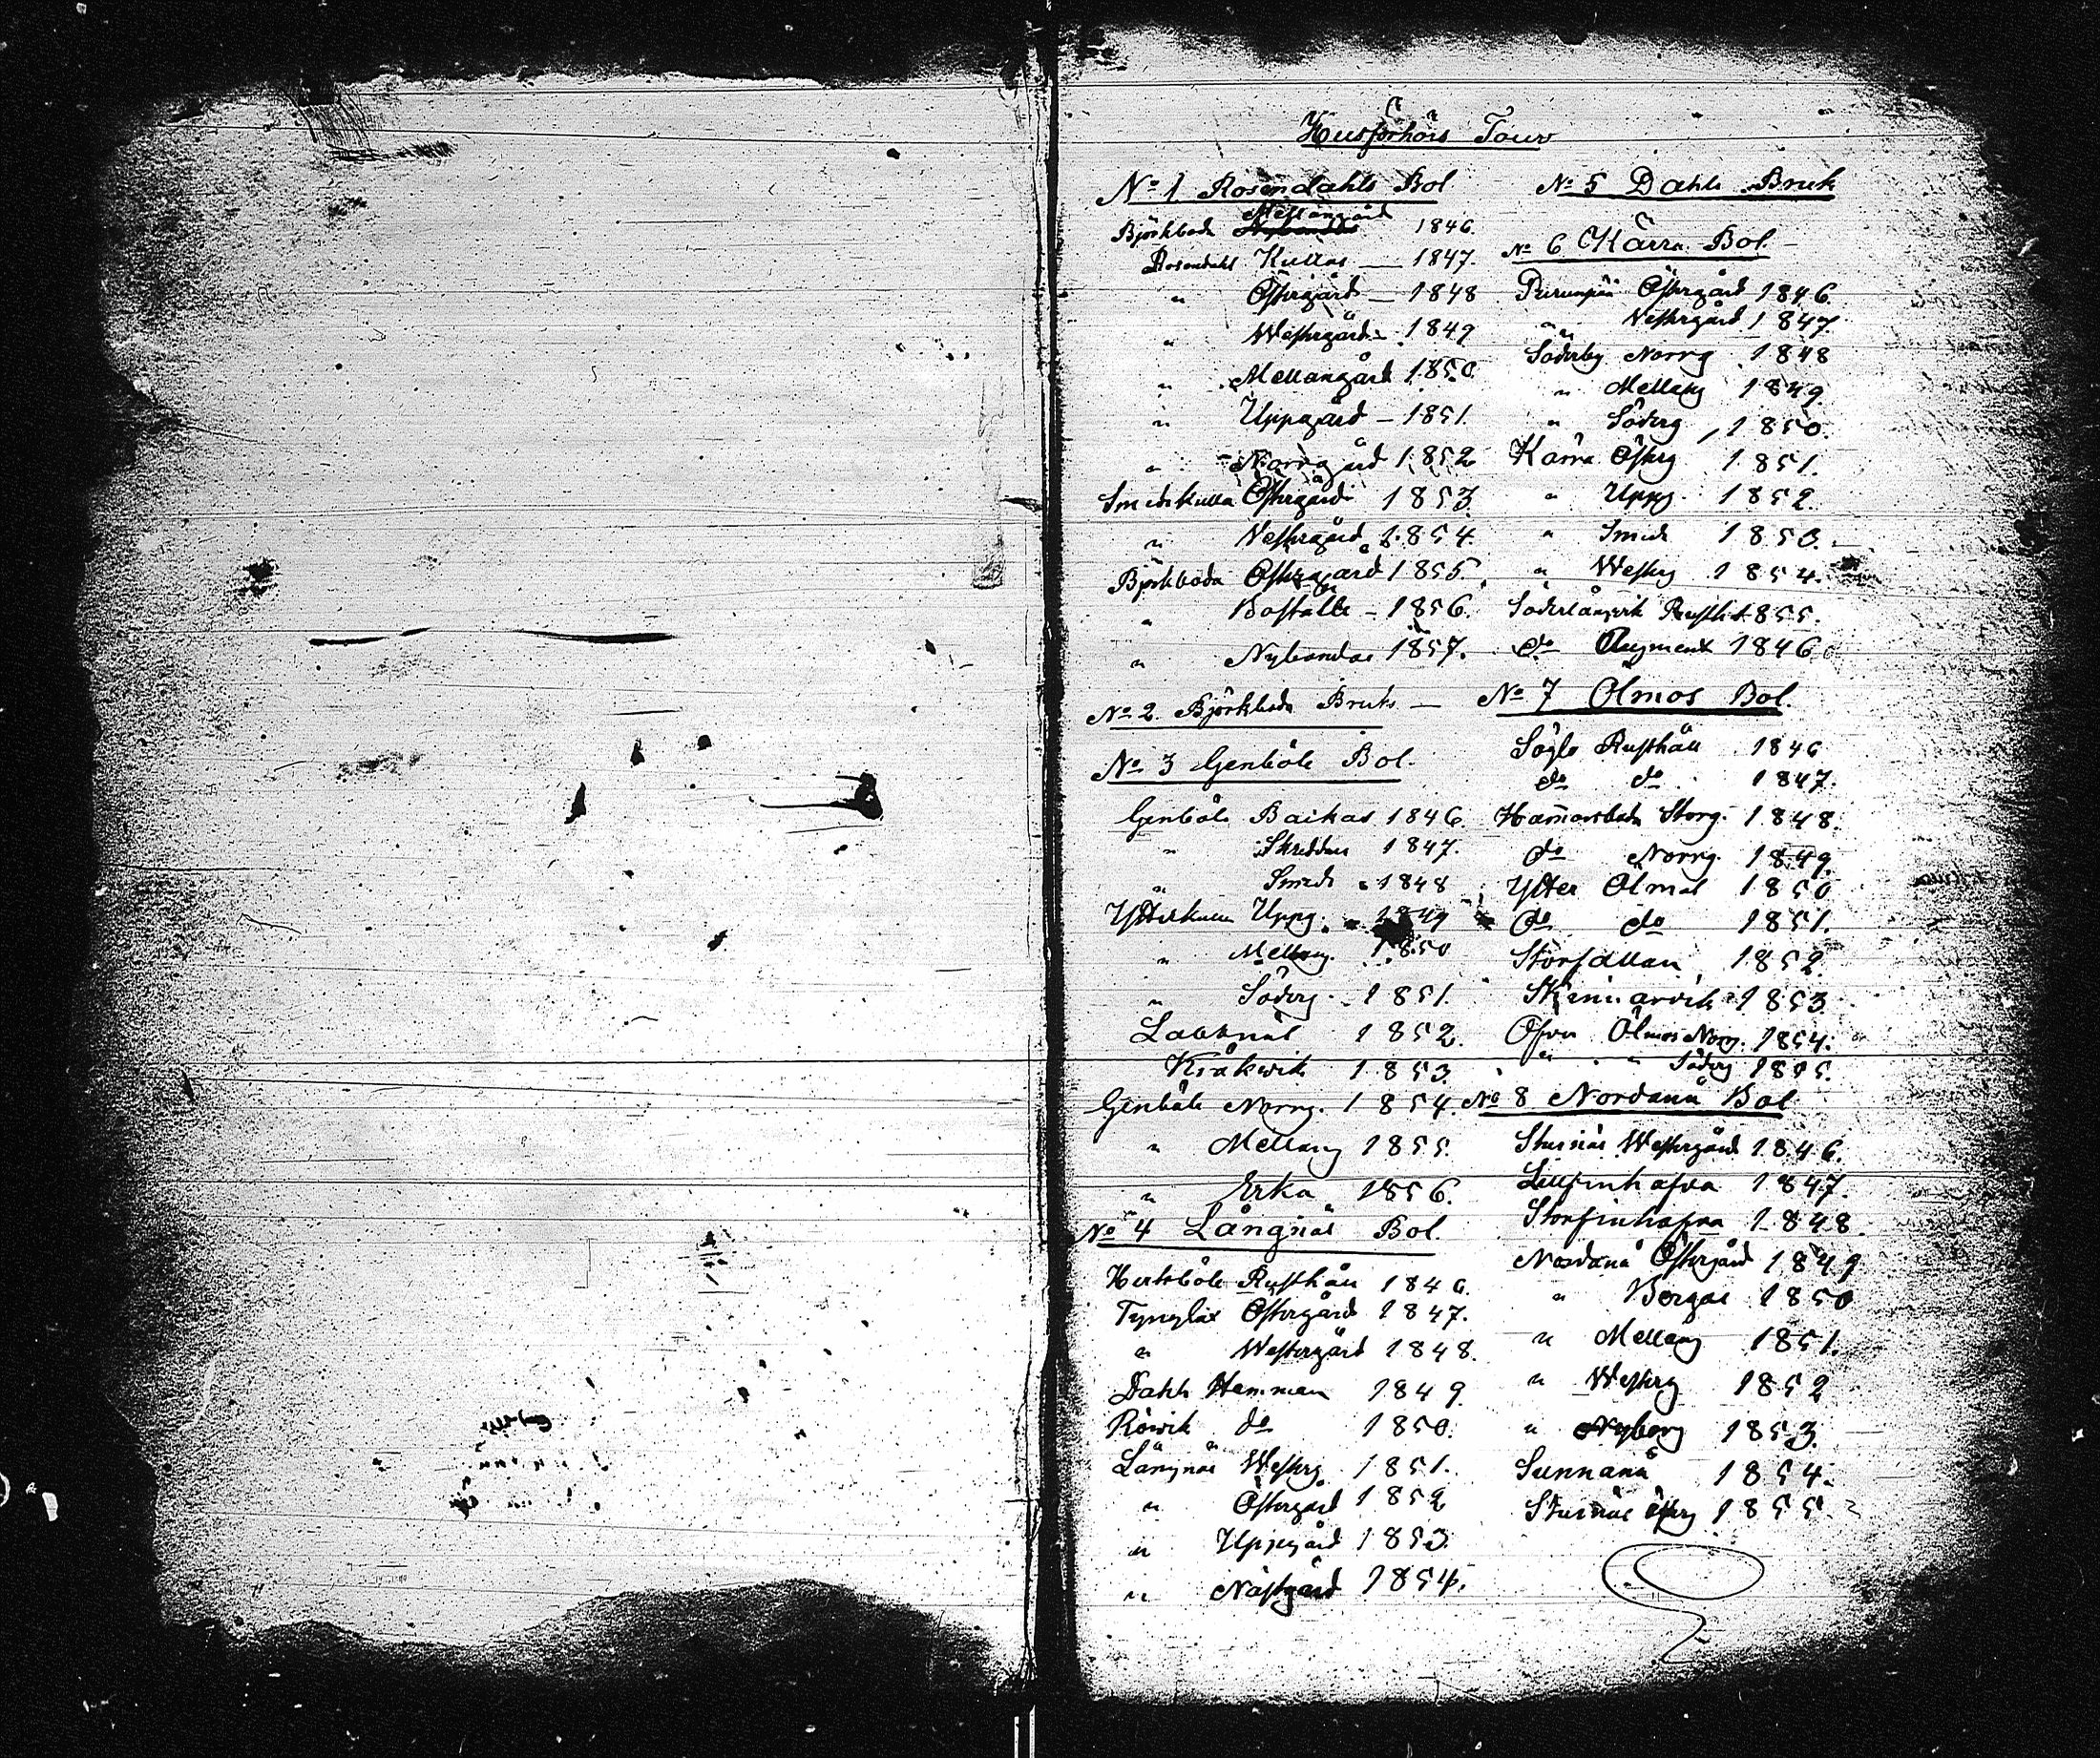 Husförhörs Tour
No 1 Rosendahls Bol
Mellangård
Björkboda Nybondas 1846.
Rosendahl Kullas — 1847.
" Östergård — 1848
" Westergård — 1849
" Mellangård 1850
" Uppagård — 1851.
" Norrgård 1852
Smedskulla Östergård 1853.
" Vestergård 1854.
Björkboda Östergård 1855.
" Boställe — 1856.
" Nybondas 1857.
No 2. Björkboda Bruk. —
No 3 Genböle Bol.
Genböle Backas 1846.
" Skreddars 1847.
" Smeds 1848
Ytterkulla Uppg. 1849
" Mellang. 1850
" Söderg. 1851.
Labbnäs 1852.
Kråkwik 1853.
Genböle Norrg. 1854.
" Mellang 1855.
" Erka 1856.
No 4 Långnäs Bol.
Hertsböle Rusthåll 1846.
Tynglax Östergård 1847.
" Westergård 1848.
Dahls Hemman 1849.
Röwik do 1850.
Långnäs Westerg 1851.
" Östergård 1852
" Uppegård 1853.
" Nästgård 1854.
No 5 Dahls Bruk
No 6 Kärra Bol. —
Purunpää Östergård 1846.
" Vestergård 1847.
Söderby Norrg 1848
" Mellang 1849.
" Söderg 1850.
Kärra Österg 1851.
" Uppg. 1852.
" Smeds 1850.
" Westerg 1854.
Söderlångvik Rusth. 1855.
do Augment 1846
No 7 Ölmos Bol.
Sögle Rusthåll 1846
do do 1847.
Hamarsboda Storg. 1848.
do Norrg. 1849.
Ytter Ölmos 1850
do do 1851.
Storfallan 1852.
Skinnarvik 1853.
Öfver Ölmos Norrg. 1854.
" " Söderg 1855.
No 8 Nordanå Bol
Stusnäs Westergård 1846.
Lillfinhofva 1847.
Storfinhofva 1848.
Nordanå Östergård 1849
" Borgas 1850
" Mellang 1851.
" Westerg 1852
" Nyborg 1853.
Sunnanå 1854.
Stusnäs Österg 1855.